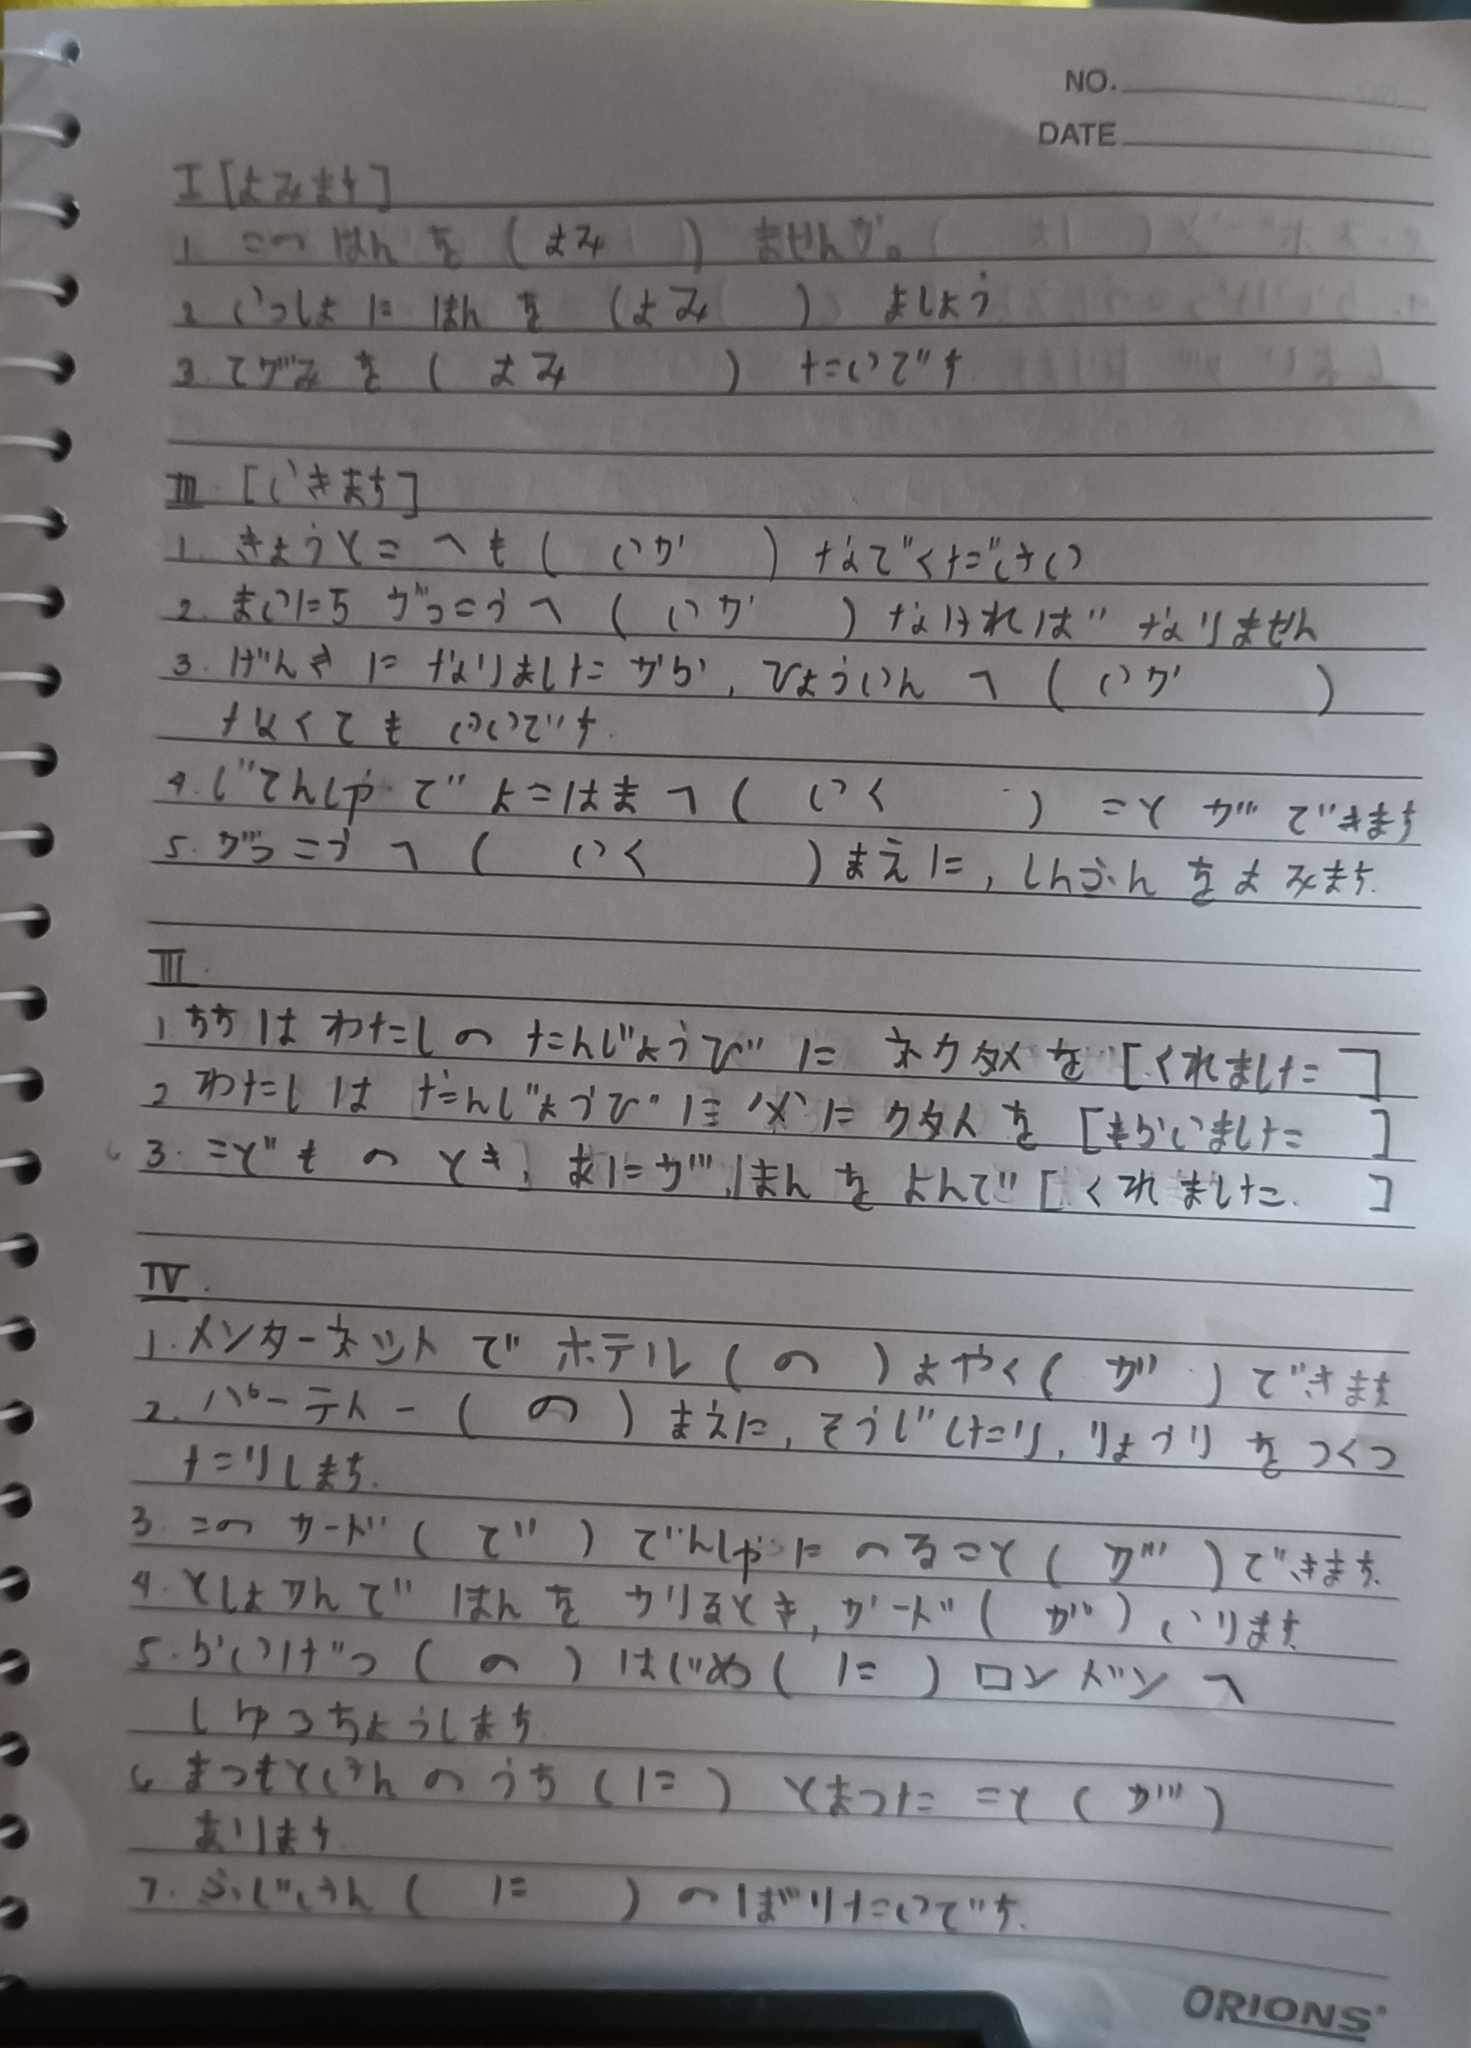 NO.
DATE
I [よみます]
1. このほんを (よみ) ませんか。
2. いっしょに ほんを (よみ) ましょう
3. てがみを (よみ) たいです
II. [いきます]
1. きょうとこへも (いか) なでください
2. まいにち がっこうへ (いか) なければ なりません
3. げんきに なりましたから, びょういんへ (いか)
なくても いいです.
4. じてんしゃで よこはまへ (いく) ことが できます
5. がっこうへ (いく) まえに, しんぶんを よみます.
III.
1 ちちは わたしの たんじょうびに ネクタメを [くれました]
2 わたしは たんじょうびに に クタイを [もらいました]
3. こどもの とき, あにが ほんを よんで [くれました.]
IV.
1. メンターネットで ホテル (の) よやく (が) できます
2. パーティー (の) まえに, そうじしたり, りょうりを つくっ
たりします.
3. このカード (で) でんしゃに のること (が) できます.
4. としょかんで ほんを かりるとき, カード (が) いります.
5. らいげつ (の) はじめ (に) ロンドンへ
しゅっちょうします
6 まつもとさんの うち (に) とまったこと (が)
あります.
7. ふじさん (に) のぼりたいです.
ORIONS